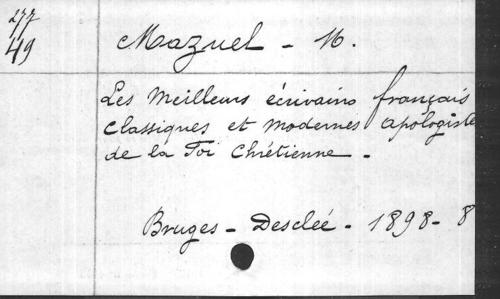 277
49
Mazuel - M.
Les Meilleurs écrivains français
classiques et modernes apologiste
de la Foi Chrétienne -
Bruges - Desclée - 1898 - 8